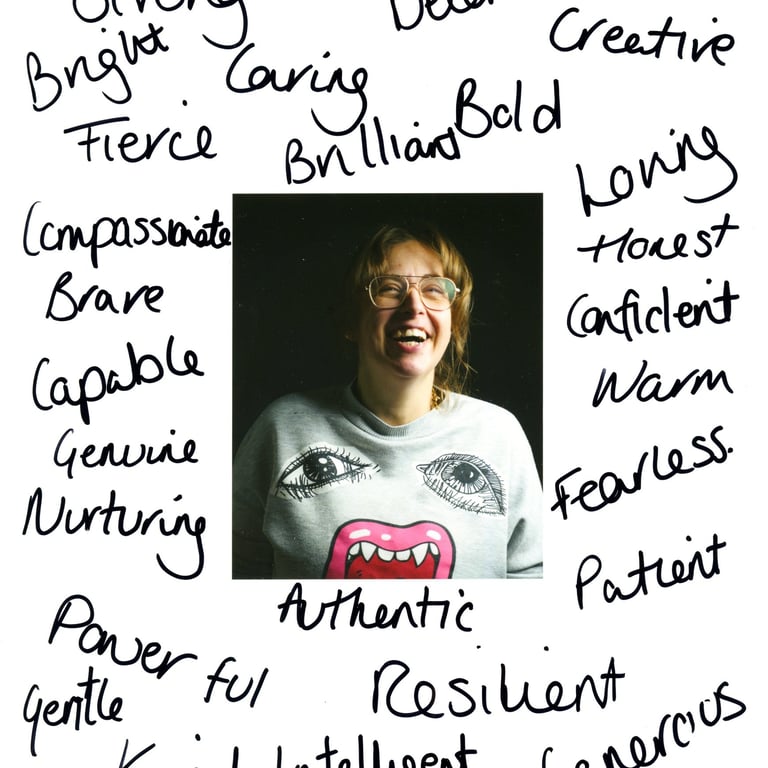 Strong
Creative
Bright
Caring
Bold
Fierce
Brilliant
Loving
Compassionate
Honest
Brave
Confident
Capable
Warm
Genuine
Fearless.
Nurturing
Patient
Authentic
Powerful
Resilient
Gentle
Generous
Kind
Intelligent